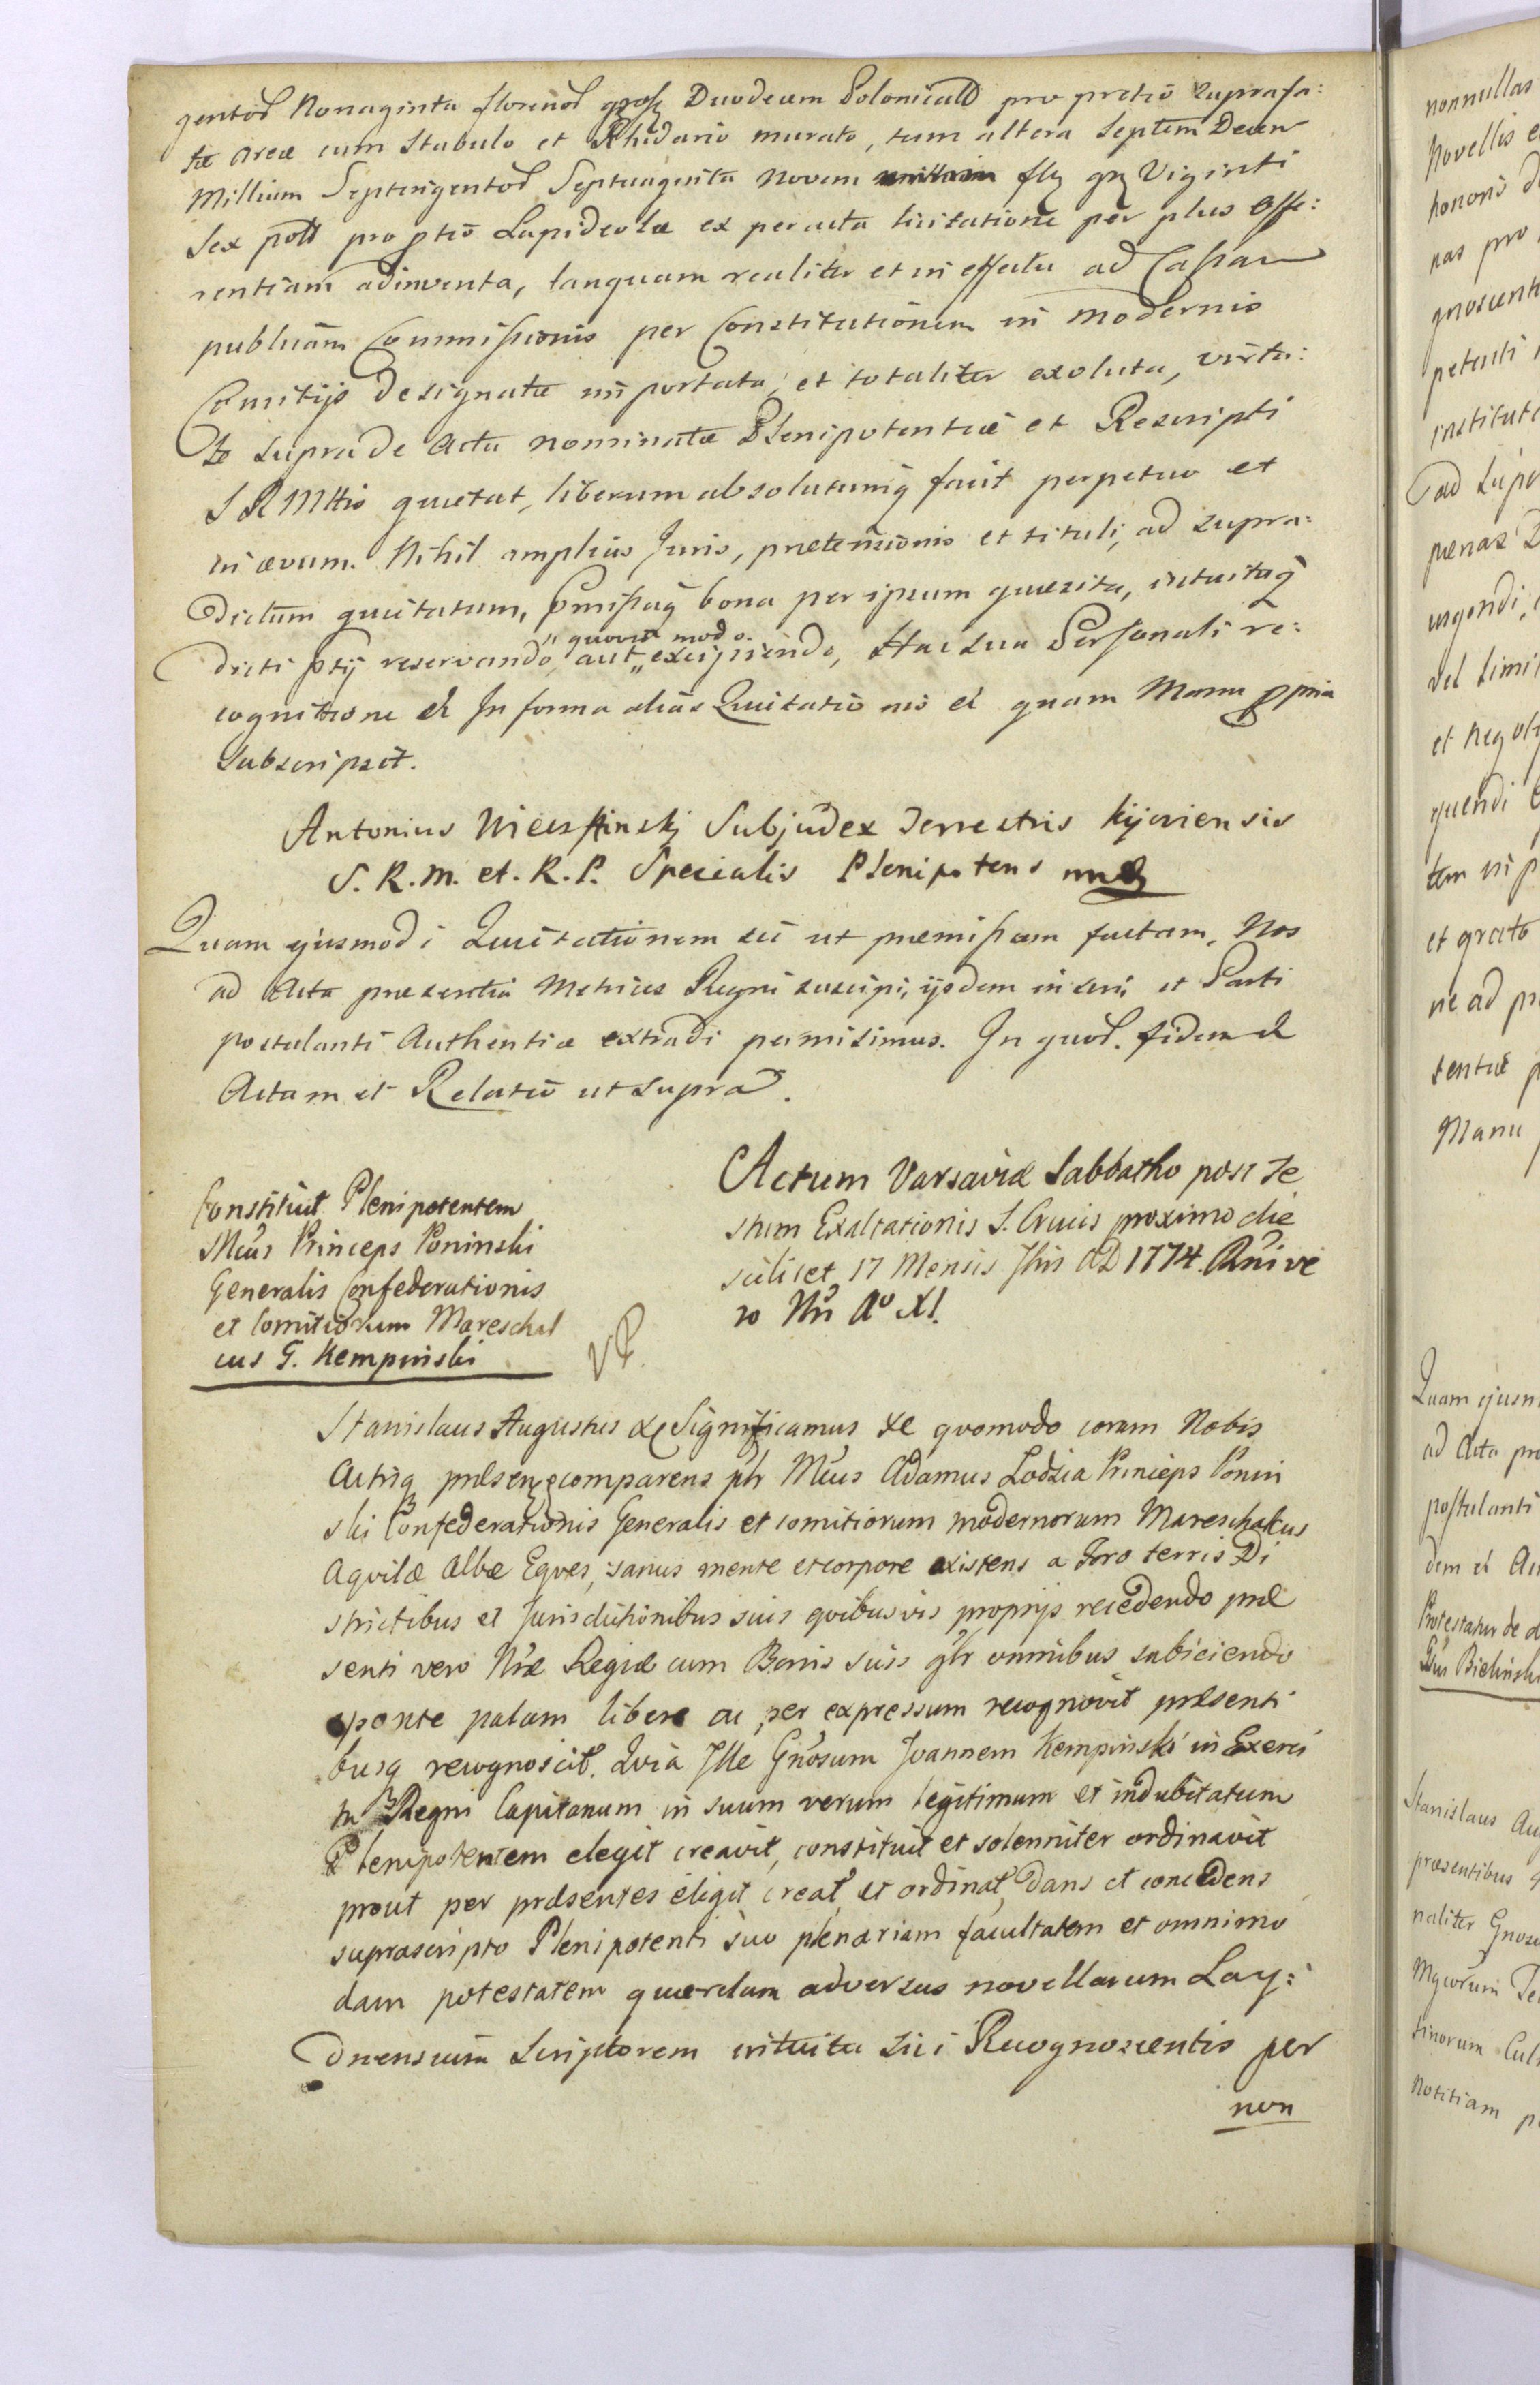 gentos Nonaginta florenos grosz Duodecim Polonicales pro pretio suprafa:
tæ areæ cum Stabulo et Rhedario murato, tum altera Septem Decem
Millium Septingentos Septuaginta Novem flg grz Viginti
Sex poll pro ptio Lapideolæ ex peracta licitatione per plus offe:
rentiam adinventa, tanquam realiter et in effectu ad Cassam
publicam Commissionis per Constitutionem in modernis
Comitijs designatæ importata, et totaliter exoluta, virtu:
te supra de actu nominatæ Plenipotentiæ et Rescripti
S R Mttis quietat, liberum absolutumq facit perpetuo et
in ævum. Nihil amplius Juris, pretensionis et tituli, ad supra:
dictum quietatum, pmissaq bona per ipsum quæsita, intuituq
dicti ptij reservando, aut "excipiendo, Hac sua Personali re:
" quovis modo
cognitione et In forma alias Quietationis et quam Manu ppria
subscripsit.
Antonius Subjudex Terrestris Kijoviensis
S. R. M. et. R. P. Specialis Plenipotens mp
Quam ejusmodi Quietationem sic ut præmissam factam, Nos
ad Acta præsentia Metrices Regni suscipi, ijsdem inseri, et Parti
postulanti Authentice extradi permisimus. In quor. fidem et
Actum et Relatio ut supra.
Constituit Plenipotentem
Mcus Princeps Poninski
Generalis Confederationis
et Comitiorum Mareschal
cus G. Kempinski
Actum Varsaviæ Sabbatho post Fe
stum Exaltationis S. Crucis proximo die
scilicet 17 Mensis 7bris AD 1774. Rni ve
ro Nri Ao XI.
Stanislaus Augustus &c Significamus &c quomodo coram Nobis
Actisq præsen comparens plr Mcus Adamus Lodzia Princeps Ponin
ski Confederationis Generalis et comitiorum modernorum Mareschalcus
Aquilæ Albæ Eques, sanus mente et corpore existens a Foro terris Di
strictibus et Jurisdictionibus suis quibusvis proprijs recedendo præ
senti vero Nræ Regiæ cum Bonis suis glr omnibus subiciendo
sponte palam libere ac per expressum recognovit præsenti
busq recognoscit. Quia Ille Gnosum Joannem Kempinski in Exerci
tu Regni Capitaneum in suum verum legitimum et indubitatum
Plenipotentem elegit creavit, constituit et solenniter ordinavit
prout per præsentes eligit creat, et ordinat, dans et concedens
suprascripto Plenipotenti suo plenariam facultatem et omnimo
dam potestatem quærelam adversus novellarum Lay:
dnensium Scriptorem intuitu sui Recognoscentis per
non
nonnullas
novellis e
honoris d
nas pro
gnoscent
petenti
institut
ad supr
pænas
urgendi,
vel limi
et neg
quendi
tem in p
et grato
ne ad p
sentiæ p
Manu
Quam ejusm
ad Acta pr
postulanti
dem et Ac
Protestatur de
Bielinski
Stanislaus Au
præsentibus
naliter Gnos
Mgcorum
tinorum Cul
Notitiam p